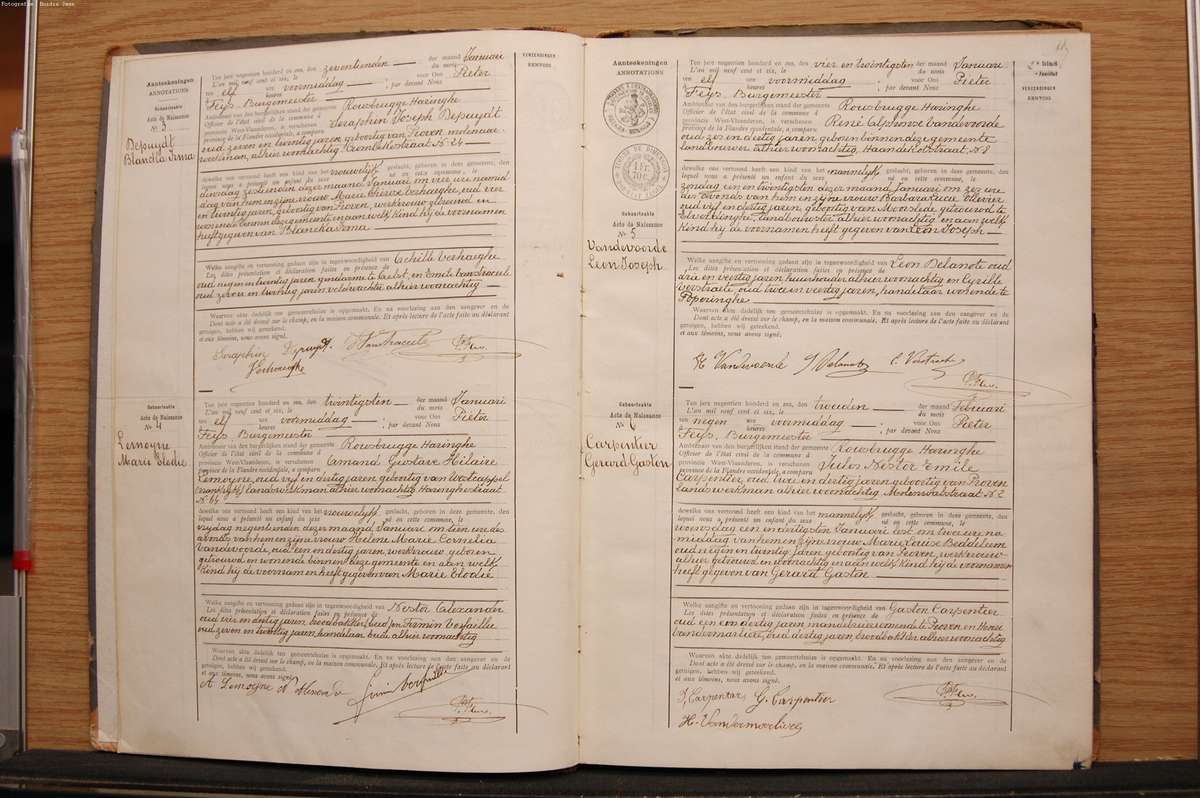 Fotografie : Boudry Jean
Aanteekeningen
ANNOTATIONS
Geboorteakte
Acte de Naissance
№ 3
Depuydt
Blandia Irma
VERZENDINGEN
RENVOIS
Ten jare negentien honderd en zes, den zeventienden — der maand Januari
L'an mil neuf cent et six, le du mois
ten elf ure voormiddag — ; voor Ons Pieter
heures ; par devant Nous
Feys, Burgemeester
Ambtenaar van den burgerlijken stand der gemeente Rousbrugge Haringhe
Officier de l'état civil de la commune d
provincie West-Vlaanderen, is verschenen Seraphin Joseph Depuydt
province de la Flandre occidentale, a comparu
oud zeven en twintig jaren, geboortig van Proven, molenaar
werkman, alhier woonachtig, Crombekestraat № 24
dewelke ons vertoond heeft een kind van het vrouwelijk geslacht, geboren in deze gemeente, den
lequel nous a présenté un enfant du sexe né en cette commune, le
dinsdag zestienden dezer maand Januari om vier ure namid
dag van hem en zijne vrouw Marie Therese Verhaeghe, oud vier
en twintig jaren, geboortig van Proven, werkvrouw, getrouwd en
wonende binnen deze gemeente en aan welk kind hij de voornamen
heeft gegeven van Blancka Irma
Welke aangifte en vertooning gedaan zijn in tegenwoordigheid van Achille Verhaeghe
Les dites présentation et déclaration faites en présence de
oud negen en twintig jaren, gendarme te Aelst, en Emile Van Straceele
oud zeven en twintig jaren, veldwachter alhier woonachtig
Waarvan akte dadelijk ten gemeentehuize is opgemaakt. En na voorlezing aan den aangever en de
Dont acte a été dressé sur le champ, en la maison communale. Et après lecture de l'acte faite au déclarant
getuigen, hebben wij geteekend.
et aux témoins, nous avons signé.
Seraphin Depuydt VanStraceele P. Feys
Verhaeghe
Geboorteakte
Acte de Naissance
№ 4
Lemoyne
Marie Elodie
Ten jare negentien honderd en zes, den twintigsten — der maand Januari
L'an mil neuf cent et six, le du mois
ten elf ure voormiddag — ; voor Ons Pieter
heures ; par devant Nous
Feys, Burgemeester
Ambtenaar van den burgerlijken stand der gemeente Rousbrugge Haringhe
Officier de l'état civil de la commune d
provincie West-Vlaanderen, is verschenen Amand Gustave Hilaire
province de la Flandre occidentale, a comparu
Lemoyne, oud vijf en dertig jaren, geboortig van Westcappel
(Frankrijk) landswerkman alhier woonachtig Haringhestraat
№ 64
dewelke ons vertoond heeft een kind van het vrouwelijk geslacht, geboren in deze gemeente, den
lequel nous a présenté un enfant du sexe né en cette commune, le
vrijdag negentienden dezer maand Januari, om tien ure des
avonds van hem en zijne vrouw Helene Marie Cornelia
Vandevoorde, oud een en dertig jaren, werkvrouw, geboren
getrouwd en wonende binnen deze gemeente en aan welk
kind hij de voornamen heeft gegeven van Marie Elodie
Welke aangifte en vertooning gedaan zijn in tegenwoordigheid van Nestor Alexander
Les dites présentation et déclaration faites en présence de
oud vier en dertig jaren broodbakker, en Firmin Versaille
oud zeven en twintig jaren, handelaar beide alhier woonachtig
Waarvan akte dadelijk ten gemeentehuize is opgemaakt. En na voorlezing aan den aangever en de
Dont acte a été dressé sur le champ, en la maison communale. Et après lecture de l'acte faite au déclarant
getuigen, hebben wij geteekend.
et aux témoins, nous avons signé.
A Lemoyne N Alexander Firmin Versaille
P. Feys
Aanteekeningen
ANNOTATIONS
Geboorteakte
Acte de Naissance
№ 5
Vandevoorde
Leon Joseph
VERZENDINGEN
RENVOIS
Ten jare negentien honderd en zes, den vier en twintigsten der maand Januari
L'an mil neuf cent et six, le du mois
ten elf ure voormiddag — ; voor Ons Pieter
heures ; par devant Nous
Feys, Burgemeester
Ambtenaar van den burgerlijken stand der gemeente Rousbrugge Haringhe
Officier de l'état civil de la commune d
provincie West-Vlaanderen, is verschenen René Alphonse Vandevoorde
province de la Flandre occidentale, a comparu
oud zes en dertig jaren, geboren binnen deze gemeente
landbouwer alhier woonachtig, Haandekotstraat, № 8
dewelke ons vertoond heeft een kind van het mannelijk geslacht, geboren in deze gemeente, den
lequel nous a présenté un enfant du sexe né en cette commune, le
zondag een en twintigsten dezer maand Januari om zes ure
des avonds van hem en zijne vrouw Barbara Lucie Ollevier
oud vijf en dertig jaren, geboortig van Moorslede, getrouwd te
Elverdinghe, landbouwster alhier woonachtig en aan welk
kind hij de voornamen heeft gegeven van Leon Joseph
Welke aangifte en vertooning gedaan zijn in tegenwoordigheid van Leon Delanote oud
Les dites présentation et déclaration faites en présence de
drie en veertig jaren, huurhouder alhier woonachtig en Cyrille
Verstraete, oud twee en veertig jaren, handelaar wonende te
Poperinghe
Waarvan akte dadelijk ten gemeentehuize is opgemaakt. En na voorlezing aan den aangever en de
Dont acte a été dressé sur le champ, en la maison communale. Et après lecture de l'acte faite au déclarant
getuigen, hebben wij geteekend.
et aux témoins, nous avons signé.
R Vandevoorde L Delanote C. Verstraete
P. Feys
Geboorteakte
Acte de Naissance
№ 6
Carpentier
Gerard Gaston
Ten jare negentien honderd en zes, den tweeden — der maand Februari
L'an mil neuf cent et six, le du mois
ten negen ure voormiddag — ; voor Ons Pieter
heures ; par devant Nous
Feys, Burgemeester
Ambtenaar van den burgerlijken stand der gemeente Rousbrugge Haringhe
Officier de l'état civil de la commune d
provincie West-Vlaanderen, is verschenen Jules Nestor Emile
province de la Flandre occidentale, a comparu
Carpentier, oud twee en dertig jaren, geboortig van Proven
landswerkman alhier woonachtig, Molenwalstraat № 2
dewelke ons vertoond heeft een kind van het mannelijk geslacht, geboren in deze gemeente, den
lequel nous a présenté un enfant du sexe né en cette commune, le
woensdag een en dertigsten Januari lest om twee ure na
middag van hem en zijne vrouw Marie Louise Beddeleem
oud negen en twintig jaren, geboortig van Proven, werkvrouw
alhier getrouwd en woonachtig en aan welk kind hij de voornamen
heeft gegeven van Gerard Gaston
Welke aangifte en vertooning gedaan zijn in tegenwoordigheid van Gaston Carpentier
Les dites présentation et déclaration faites en présence de
oud een en dertig jaren, wonende te Proven en Henri
Vandermarliere, oud dertig jaren, broodbakker alhier woonachtig
Waarvan akte dadelijk ten gemeentehuize is opgemaakt. En na voorlezing aan den aangever en de
Dont acte a été dressé sur le champ, en la maison communale. Et après lecture de l'acte faite au déclarant
getuigen, hebben wij geteekend.
et aux témoins, nous avons signé.
J. Carpentier G. Carpentier P. Feys
H. Vandermarliere